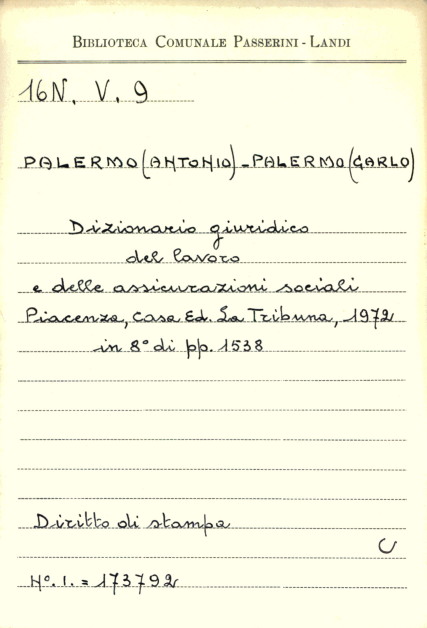 BIBLIOTECA COMUNALE PASSERINI - LANDI
16N. V. 9
PALERMO (ANTONIO) - PALERMO (CARLO)
Dizionario giuridico
del lavoro
e delle assicurazioni sociali
Piacenza, Casa Ed. La Tribuna, 1972
in 8° di pp. 1538
Diritto di stampa
C
N°. I. = 173792